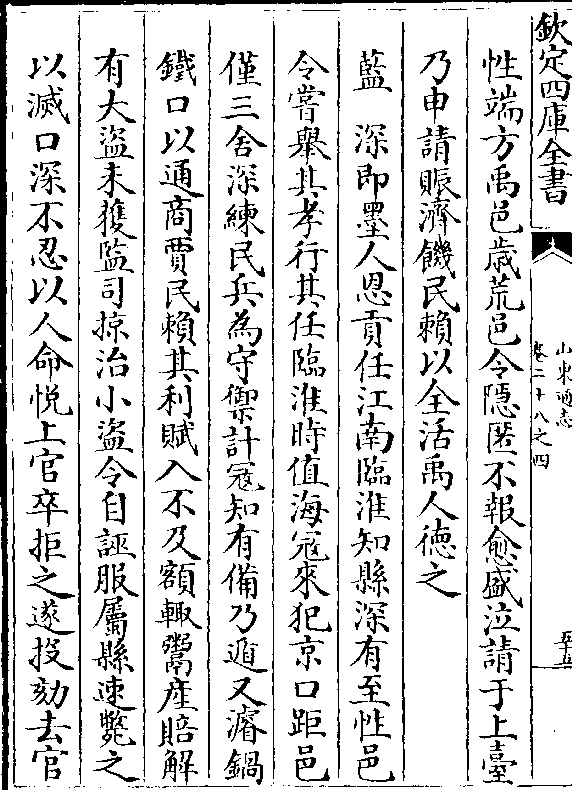 欽定四庫全書
山東通志
卷二十八之四
五十五
性端方禹邑歲荒邑令隱匿不報愈盛泣請于上臺
乃申請賑濟饑民賴以全活禹人德之
藍 深即墨人恩貢任江南臨淮知縣深有至性邑
令嘗舉其孝行其任臨淮時值海寇來犯京口距邑
僅三舍深練民兵為守禦計冦知有備乃遁又濬鍋
鐵口以通商賈民賴其利賦入不及額輒鬻產賠解
有大盜未獲監司掠治小盜令自誣服屬縣速斃之
以滅口深不忍以人命悅上官卒拒之遂投劾去官